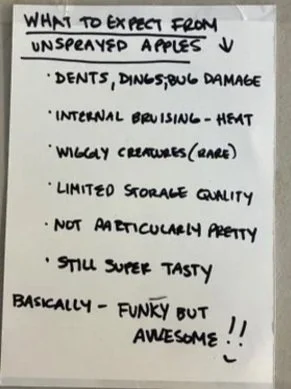 WHAT TO EXPECT FROM
UNSPRAYED APPLES ↓
· DENTS, DINGS, BUG DAMAGE
· INTERNAL BRUISING - HEAT
· WIGGLY CREATURES (RARE)
· LIMITED STORAGE QUALITY
· NOT PARTICULARLY PRETTY
· STILL SUPER TASTY
BASICALLY - FUNKY BUT
AWESOME!!